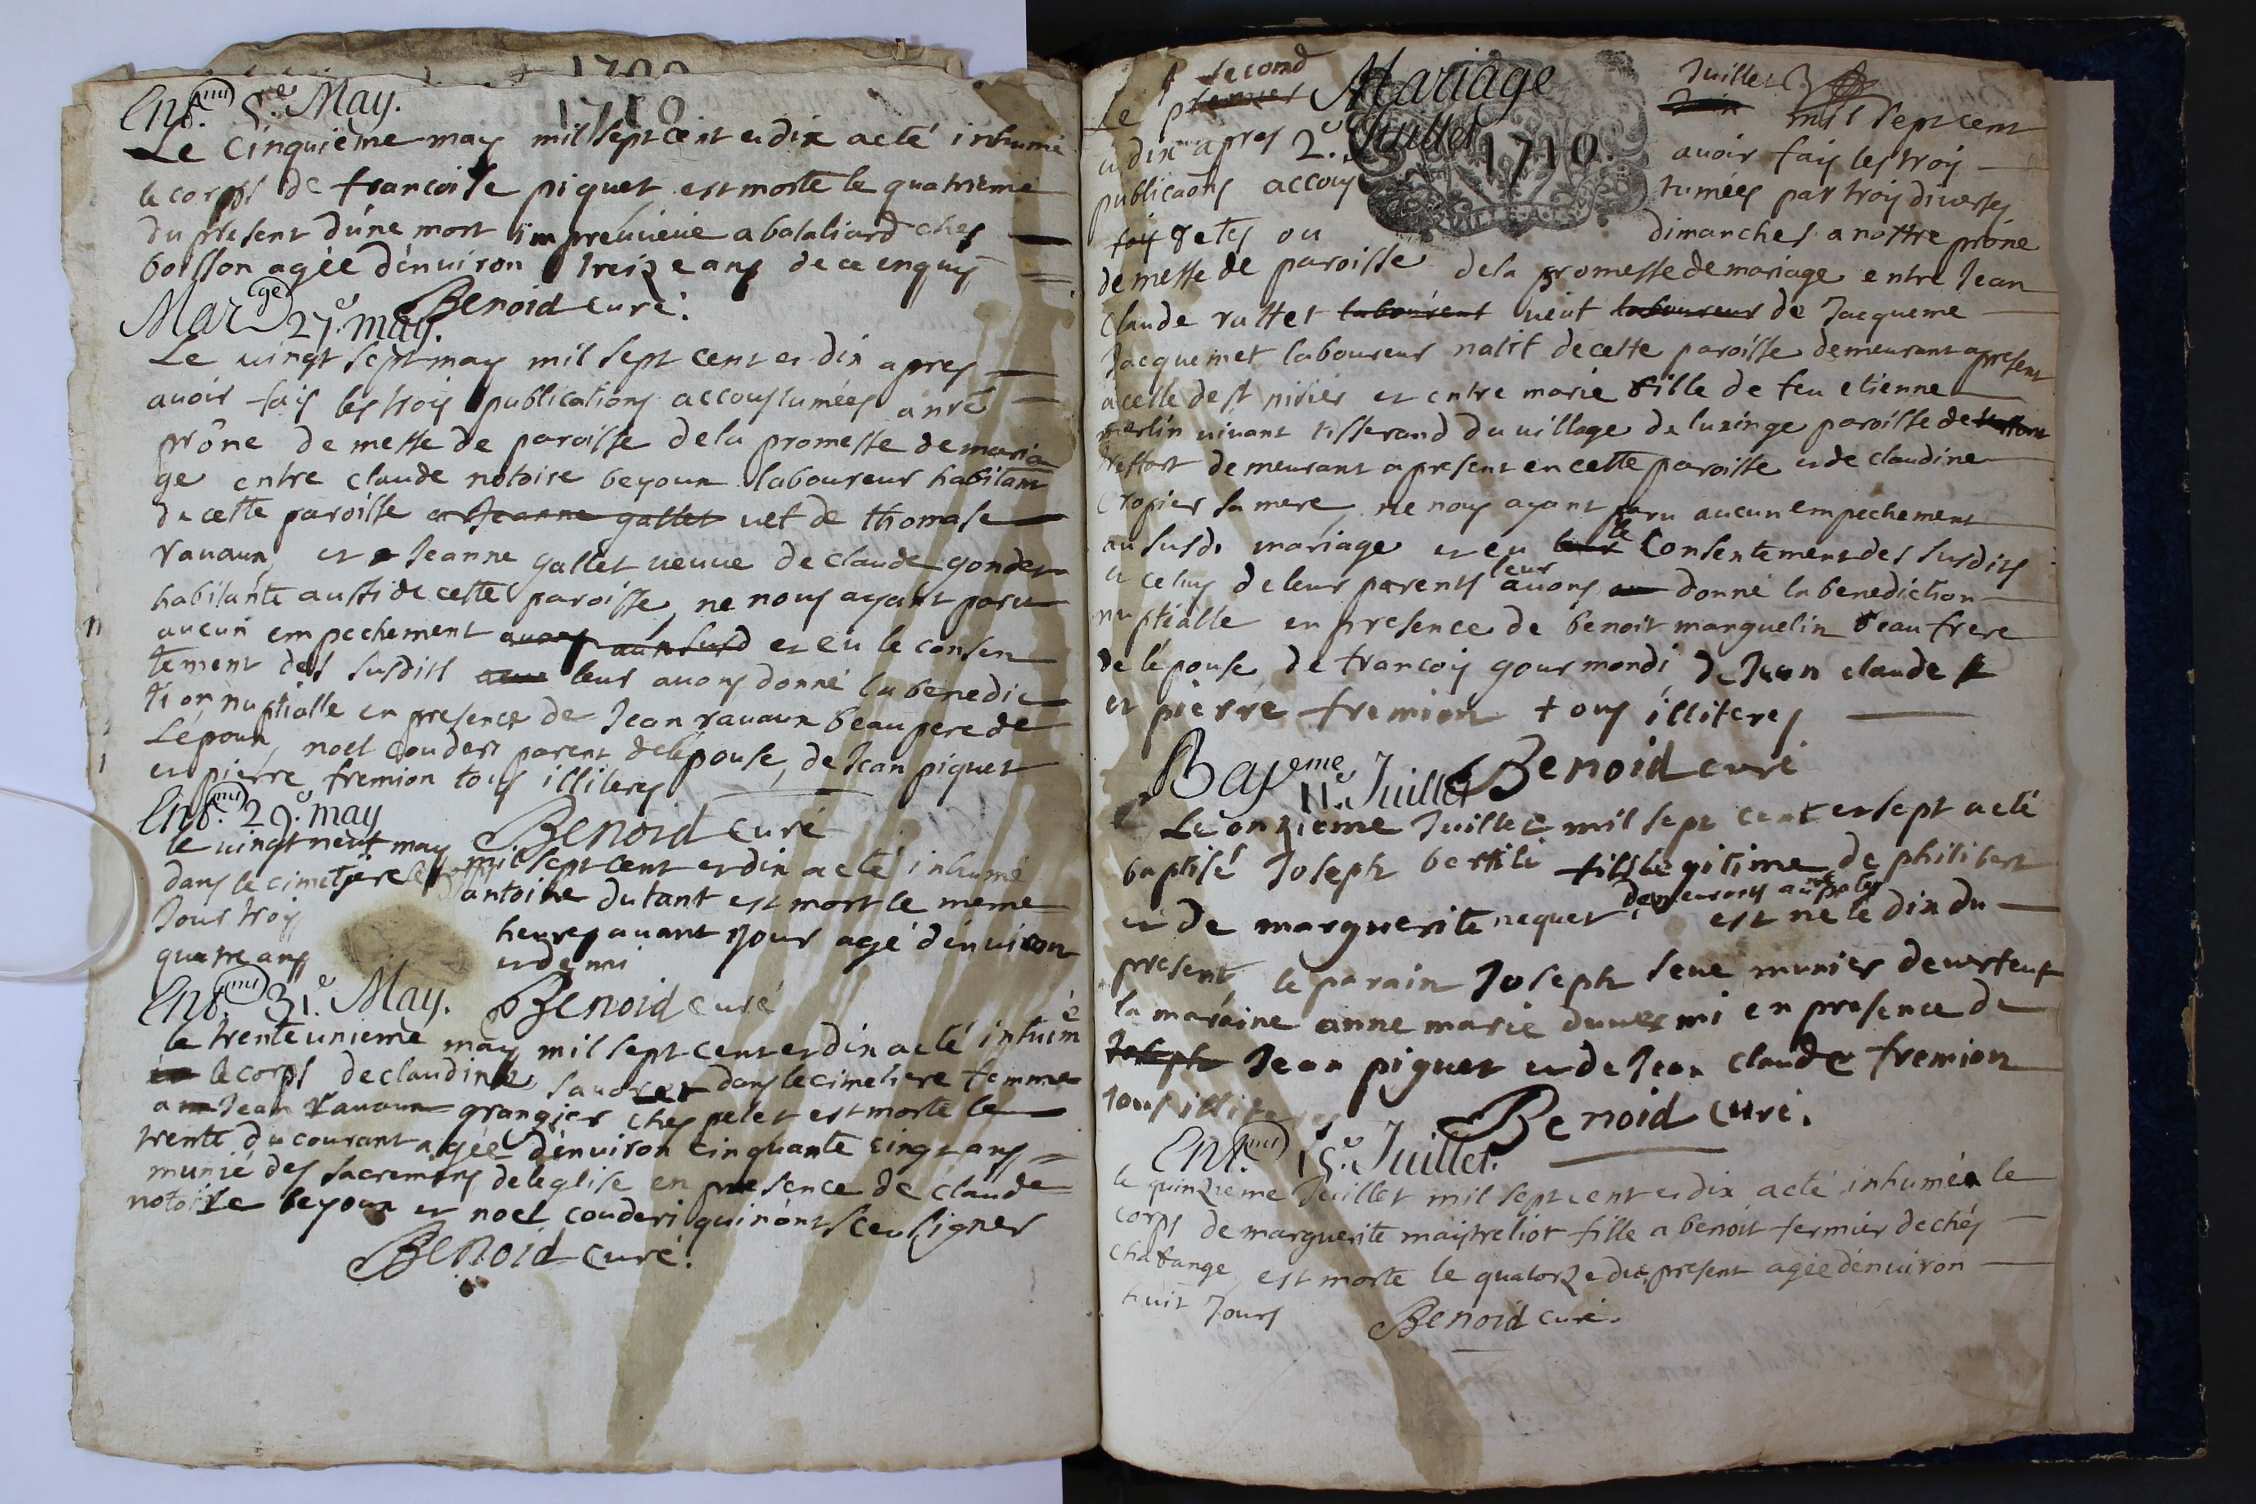 1709
1710
Ent.mt 5.e May.
Le cinquième may mil sept cent et dix a eté inhumé
le corps de francoise piquet est morte le quatrieme
du present d'une mort impreuueüe a balaliard ches
boisson agée d'enuiron treize ans de ce enquis
Benoid curé.
Mar.ge 27.e may.
Le uingt sept may mil sept cent et dix apres
auoir fais les trois publications accoustumées a nre
prône de messe de paroisse de la promesse de maria
ge entre claude notoire beyoux laboureur habitant
de cette paroisse et Jeanne gallet uef de thomase
rauaux, et Jeanne gallet ueuue de claude gondet
habitante aussi de cette paroisse, ne nous ayant paru
aucun empechement auons au susd et eü le consen
tement des susdits leur auons donné la benedic
tion nuptialle en presence de Jean rauaux beau pere de
L'époux, noel couderi parent de l'épouse, de Jean piquet
et pierre fremion tous illiteres
Benoid curé
Ent.mt 29.e may
le uingt neuf may mil sept cent et dix a eté inhumé
dans le cimetière le corps d'antoine dutant est mort le meme
Jour trois heures auant Jour agé d'enuiron
quatre ans et demi
Benoid curé
Ent.mt 31.e May.
le trente unieme may mil sept cent et dix a eté inhumé
le corps de claudine sauoret dans le cimetiere femme
a Jean rauaux grangier ches pelet est morte le
trente du courant agée d'enuiron cinquante cinq ans
munie des sacremens de leglise en presence de claude
notoire beyoux et noel couderi qui n'ont sceu signer
Benoid curé.
Mariage
2.e Juillet 1710.
Le premier second Juin Juillet mil sept cent
et dix apres auoir fais les trois
publicaons accoustumées par trois diuerses
fois fetes ou dimanches a nostre prône
de messe de paroisse de la promesse de mariage entre Jean
Claude rattet laboureur ueuf laboureur de Jacqueme
Jacquemet laboureur natif de cette paroisse demeurant a present
a celle de st nisier et entre marie fille de feu etienne
merlin uiuant tisserand du uillage de lusinge paroisse de
treffort demeurant a present en cette paroisse et de claudine
cropier sa mere, ne nous ayant paru aucun empechement
au susdi mariage et eu leur le Consentement des susdits
et celuy de leurs parents leur auons donné la benediction
nuptialle en presence de benoit manguelin beau frere
de l'épouse, de francois gourmondi de Jean claude
et pierre fremion tous illiteres
Benoid curé
Bap.eme 11.e Juillet
Le onzieme Juillet mil sept cent et sept a eté
baptisé Joseph bertili fils legitime de philibert
et de marguerite nequet, est né le dix du
present le parain Joseph seue munier de
la maraine anne marie duuermi en presence de
Joseph Jean piquet et de Jean claude fremion
tous illiteres
Benoid curé.
Ent.mt 15.e Juillet.
le quinzieme Juillet mil sept cent et dix a eté inhumée le
corps de marguerite maistreliot fille a benoit fermier de chés
chatange est morte le quatorze du present agée d'enuiron
huit Jours
Benoid curé.